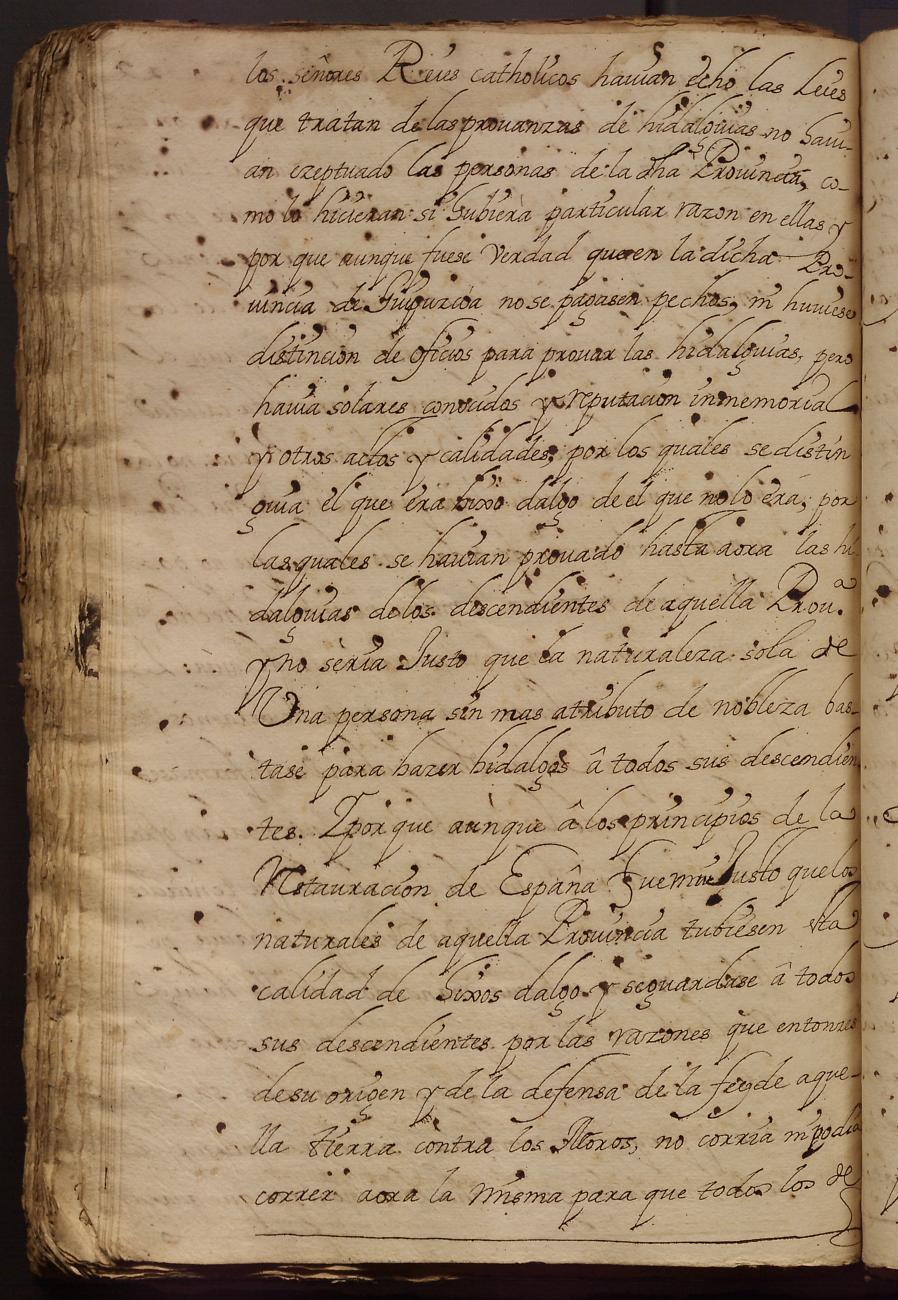 los señores Reies catholicos havian echo las Leies
que tratan de las provanzas de hidalguias no havi-
an exeptuado las personas de la dha Provincia, co-
mo lo hicieran si hubiera particular razon en ellas y
por que aunque fuese verdad que en la dicha Pro-
vincia de Guipuzcoa no se pagasen pechos, ni huviese
distincion de oficios para provar las hidalguias, pero
havia solares conocidos y reputacion inmemorial
y otros actos y calidades, por los quales se distin
guia el que era hixo dalgo de el que no lo era, por
las quales se havian provado hasta aora las hi
dalguias de los descendientes de aquella Prov.ª
y no seria Justo que la naturaleza sola de
Una persona sin mas atributo de nobleza bas-
tase para hazer hidalgos â todos sus descendien
tes. Y por que aunque â los principios de la
Restauracion de España fue mui Justo que los
naturales de aquella Provincia tubiesen esta
calidad de hixos dalgo y se guardase â todos
sus descendientes por las razones que entonzes
de su origen y de la defensa de la fe y de aque-
lla tierra contra los Moros, no corria ni podia
correr aora la misma para que todos los de